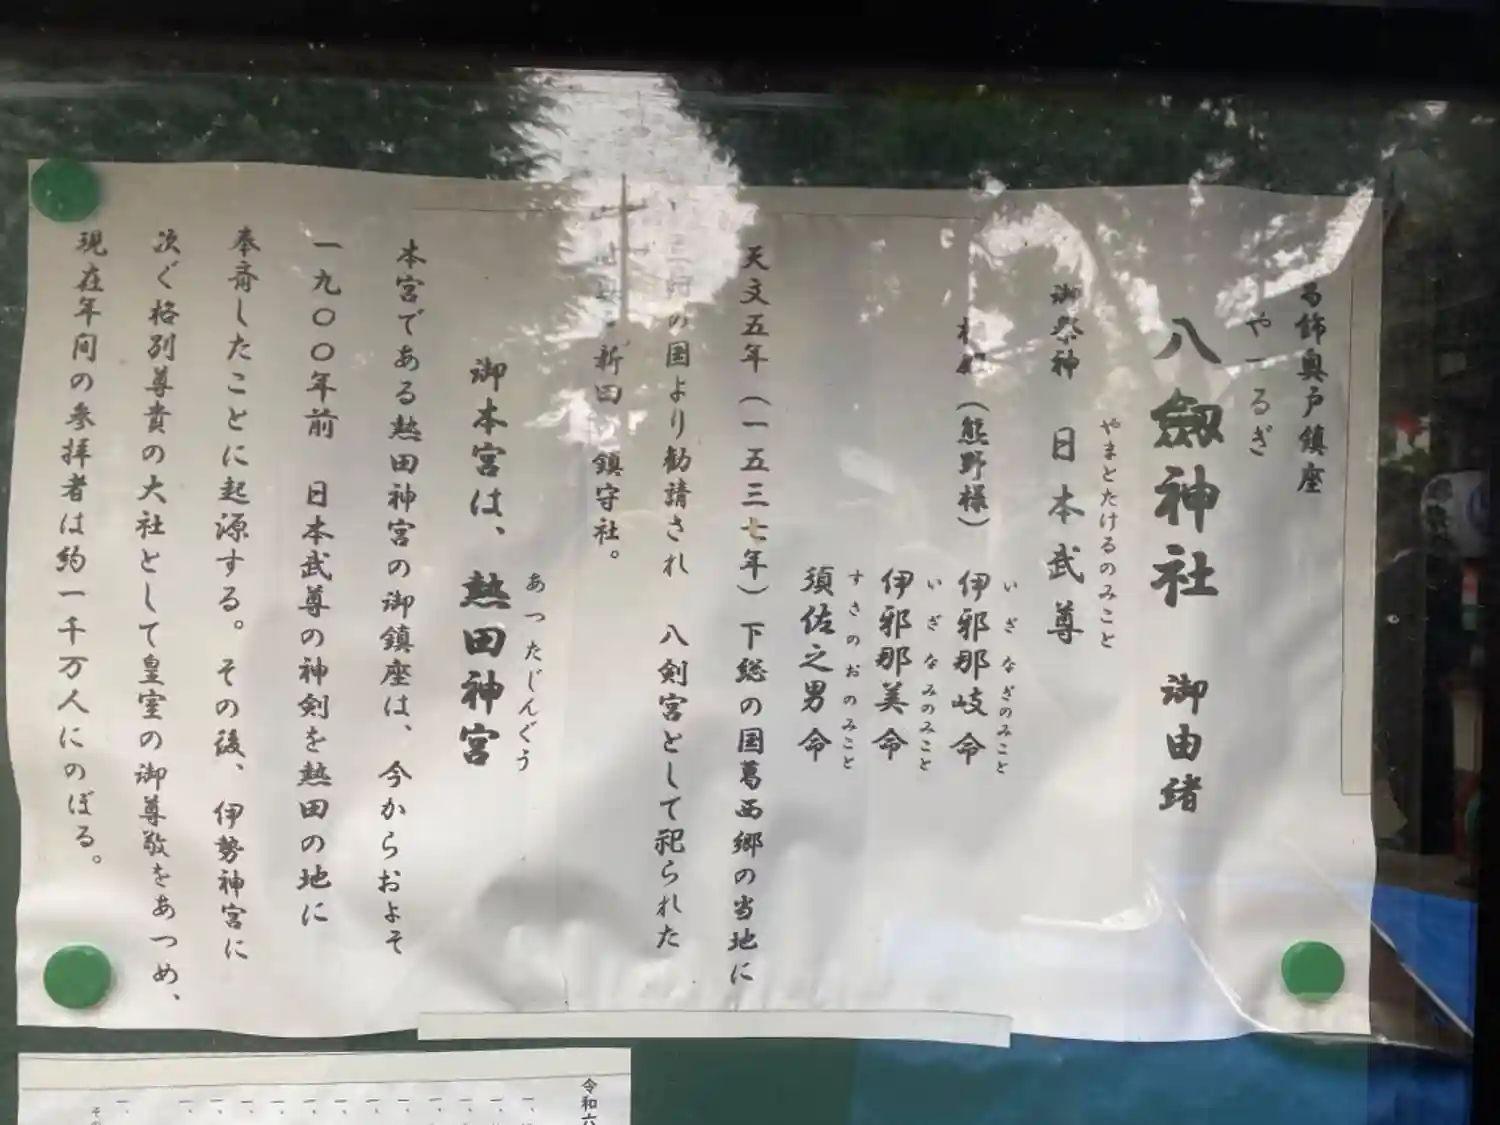 飾奥戸鎮座
やーるぎ
八劔神社　御由緒
やまとたけるのみこと
御祭神　日本武尊
いざなぎのみこと
（熊野様）　伊邪那岐命
いざなみのみこと
伊邪那美命
すさのおのみこと
須佐之男命
天文五年（一五三七年）下総の国葛西郷の当地に
の国より勧請され　八剣宮として祀られた
新田　鎮守社。
あつたじんぐう
御本宮は、熱田神宮
本宮である熱田神宮の御鎮座は、今からおよそ
一九〇〇年前　日本武尊の神剣を熱田の地に
奉斎したことに起源する。その後、伊勢神宮に
次ぐ格別尊貴の大社として皇室の御尊敬をあつめ、
現在年間の参拝者は約一千万人にのぼる。
令和六